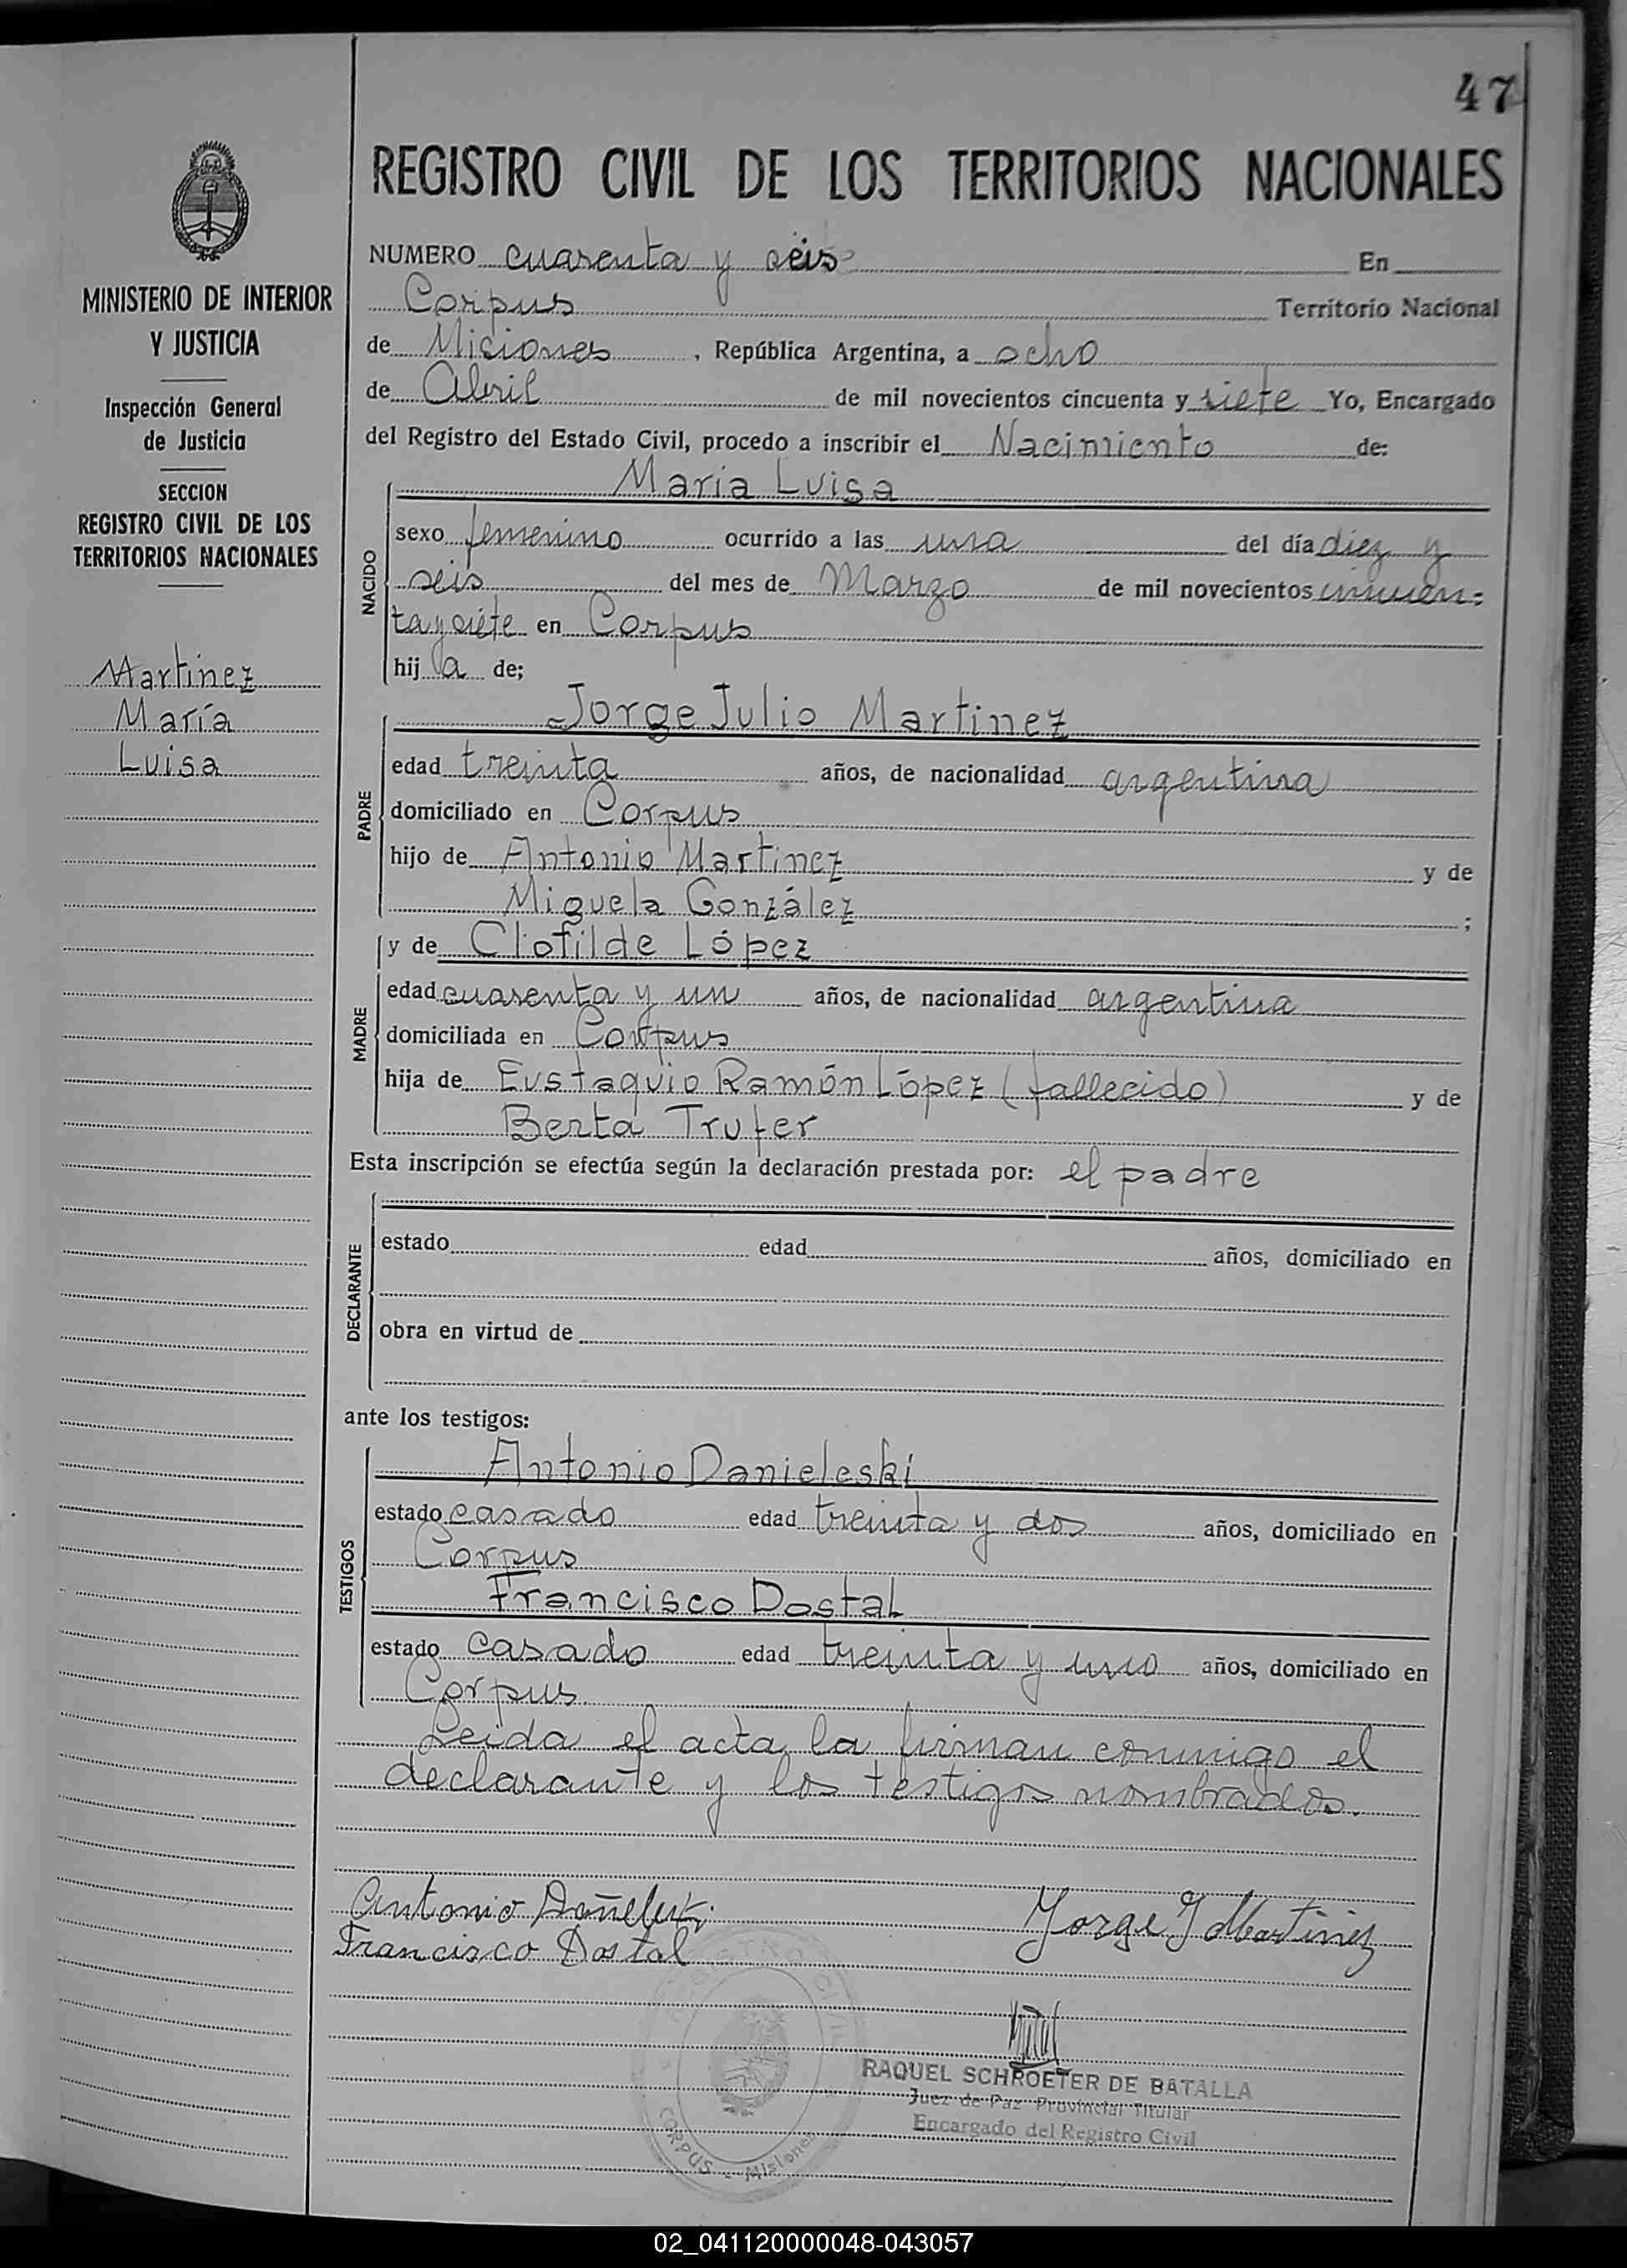 47
REGISTRO CIVIL DE LOS TERRITORIOS NACIONALES
MINISTERIO DE INTERIOR
Y JUSTICIA
Inspección General
de Justicia
SECCION
REGISTRO CIVIL DE LOS
TERRITORIOS NACIONALES
Martinez
María
Luisa
NUMERO cuarenta y séis En
Corpus Territorio Nacional
de Misiones, República Argentina, a ocho
de Abril de mil novecientos cincuenta y siete Yo, Encargado
del Registro del Estado Civil, procedo a inscribir el Nacimiento de:
NACIDO
Maria Luisa
sexo femenino ocurrido a las una del día diez y
seis del mes de Marzo de mil novecientos cincuen-
ta y siéte en Corpus
hija de;
PADRE
Jorge Julio Martinez
edad treinta años, de nacionalidad argentina
domiciliado en Corpus
hijo de Antonio Martinez y de
Miguela González ;
MADRE
y de Clotilde López
edad cuarenta y un años, de nacionalidad argentina
domiciliada en Corpus
hija de Eustaquio Ramón López (fallecido) y de
Berta Trufer
Esta inscripción se efectúa según la declaración prestada por: el padre
DECLARANTE
estado edad años, domiciliado en
obra en virtud de
ante los testigos:
TESTIGOS
Antonio Danieleski
estado casado edad treinta y dos años, domiciliado en
Corpus
Francisco Dostal
estado casado edad treinta y uno años, domiciliado en
Corpus
Leida el acta, la firman conmigo el
declarante y los testigos nombrados.
Antonio
Francisco Dostal
Jorge J Martinez
RAQUEL SCHROETER DE BATALLA
Juez de Paz Provincial Titular
Encargado del Registro Civil
REGISTRO CIVIL
CORPUS - Misiones
02_041120000048-043057